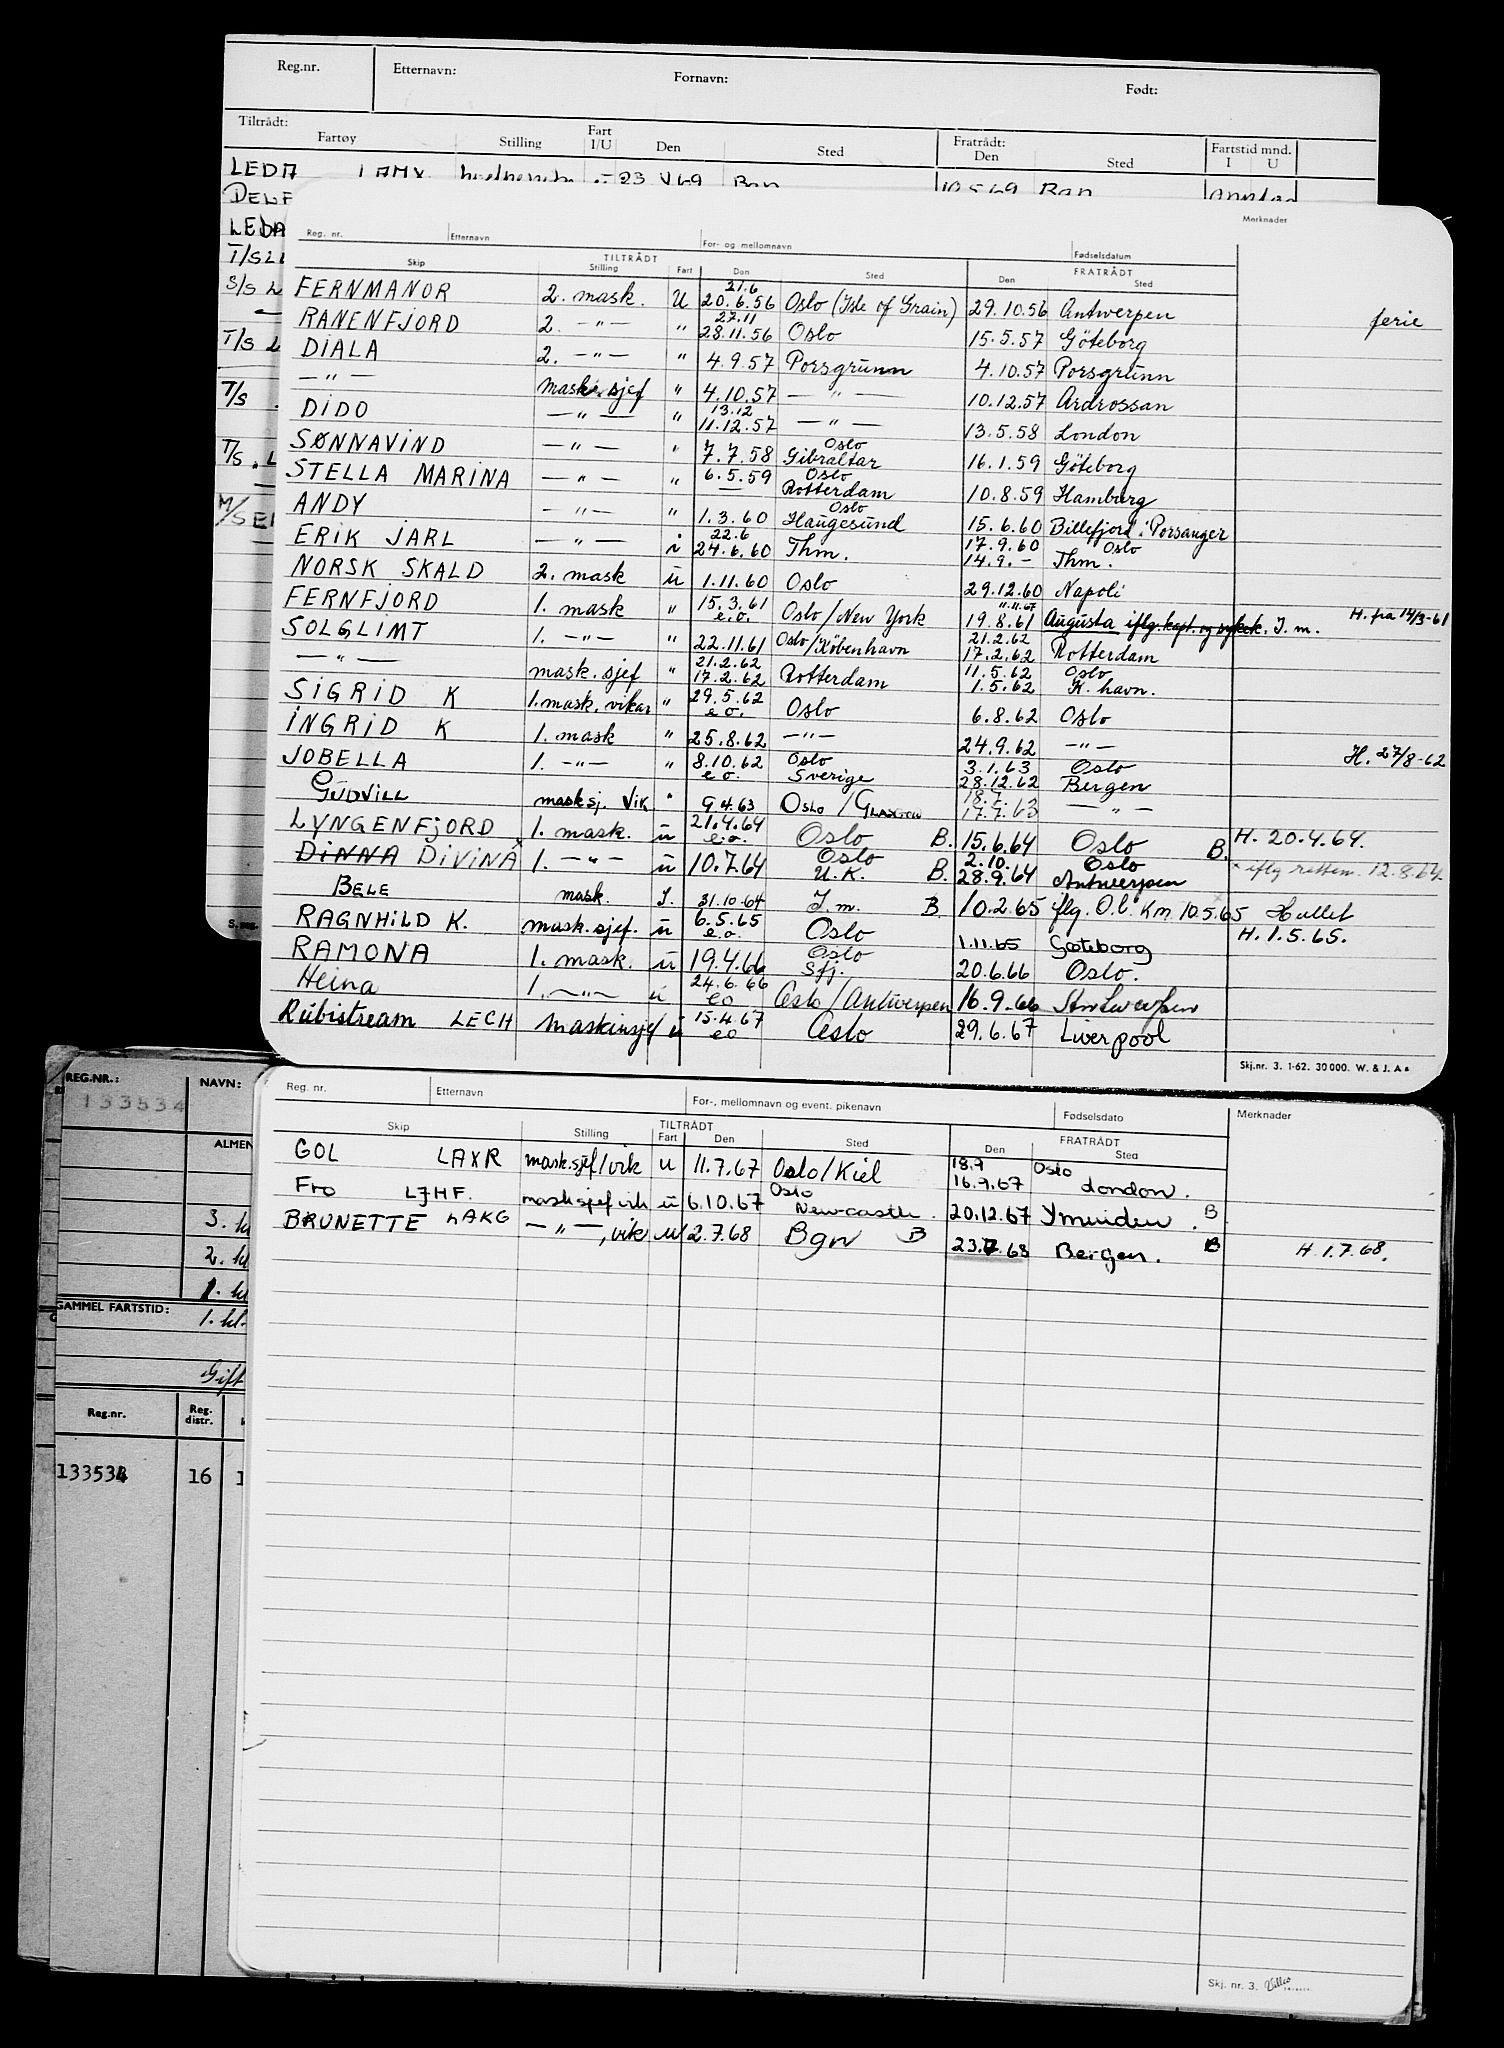 Reg.nr. Etternavn: Fornavn: Født:
Tiltrådt: Fratrådt: Fartstid mnd.
Fartøy Stilling Fart I/U Den Sted Den Sted I U
LEDA LAMX 23 V69 Bgn 10.5.69 Bgn
DELF
LEDA
T/S LE
S/S L
T/S L
T/S
T/S . L
M/S EI
Merknader
Reg. nr. Etternavn For- og mellomnavn Fødselsdatum
TILTRÅDT FRATRÅDT
Skip Stilling Fart Den Sted Den Sted
FERNMANOR 2. mask. U 21.6 20.6.56 Oslo (Isle of Grain) 29.10.56 Antwerpen ferie
RANENFJORD 2. —"— " 27.11 28.11.56 Oslo 15.5.57 Göteborg
DIALA 2. —"— " 4.9.57 Porsgrunn 4.10.57 Porsgrunn
—"— mask. sjef " 4.10.57 —"— 10.12.57 Ardrossan
DIDO —"— " 13.12 11.12.57 —"— 13.5.58 London
SØNNAVIND —"— " 7.7.58 Oslo Gibraltar 16.1.59 Göteborg
STELLA MARINA —"— " 6.5.59 — Oslo Rotterdam 10.8.59 Hamburg
ANDY —"— " 1.3.60 Oslo Haugesund 15.6.60 Billefjord i Porsanger
ERIK JARL —"— i 22.6 24.6.60 Thm. 17.9.60 14.9.- Oslo Thm.
NORSK SKALD 2. mask u 1.11.60 Oslo 29.12.60 Napoli
FERNFJORD 1. mask " 15.3.61 e.o. Oslo/New York 11.11.67 19.8.61 Augusta iflg. kapt. og I.m. H. fra 14/3-61
SOLGLIMT 1. —"— " 22.11.61 Oslo/København 21.2.62 17.2.62 Rotterdam
—"— mask. sjef " 21.2.62 17.2.62 Rotterdam 11.5.62 1.5.62 Oslo K. havn.
SIGRID K 1. mask. vikar " 29.5.62 e.o. Oslo 6.8.62 Oslo
INGRID K 1. mask " 25.8.62 —"— 24.9.62 —"— H. 27/8-62
JOBELLA 1. —"— " 8.10.62 e.o. Oslo Sverige 3.1.63 28.12.62 Oslo Bergen
GUDVILL mask sj. Vik " 9.4.63 OSLO / GLASGOW 18.7. 17.7.63 —"—
LYNGENFJORD 1. mask. u 21.4.64 e.o. Oslo B. 15.6.64 Oslo B. H. 20.4.64.
DINNA DIVINA x 1. —"— u 10.7.64 Oslo U.K. B. 2.10. 28.9.64 Oslo Antwerpen x iflg rettem. 12.8.64
BELE mask. I. 31.10.64 I.m. B 10.2.65 flg. O.l. Km 10.5.65 Hullet
RAGNHILD K. mask. sjef. u 6.5.65 e.o. Oslo 1.11.65 Gøteborg H. 1.5.65.
RAMONA 1. mask. u 19.4.66 Oslo Sfj. 20.6.66 Oslo.
Heina 1. —"— u 24.6.66 eo Oslo/Antwerpen 16.9.66 Antwerpen
Rubistream LECH Maskinsjef u 15.4.67 eo Oslo 29.6.67 Liverpool
Skj.nr. 3. 1-62. 30000. W. & J. A s
S.
REG.NR.: NAVN:
133534
ALMEN
3. kl
2. kl
1. kl
GAMMEL FARTSTID: 1. kl.
Gift
Reg.nr. Reg. distr.
133534 16 1
Reg. nr. Etternavn For-, mellomnavn og event. pikenavn Fødselsdato Merknader
TILTRÅDT FRATRÅDT
Skip Stilling Fart Den Sted Den Sted
GOL LAXR mask.sjef/vik u 11.7.67 Oslo/Kiel 18.9 16.9.67 Oslo London.
Fro LJHF. mask sjef vik u 6.10.67 Oslo Newcastle. 20.12.67 Ymuiden. B
BRUNETTE LAKG —"—, vik u 2.7.68 Bgn B 23.7.68 Bergen. B H. 1.7.68.
Skj. nr. 3.